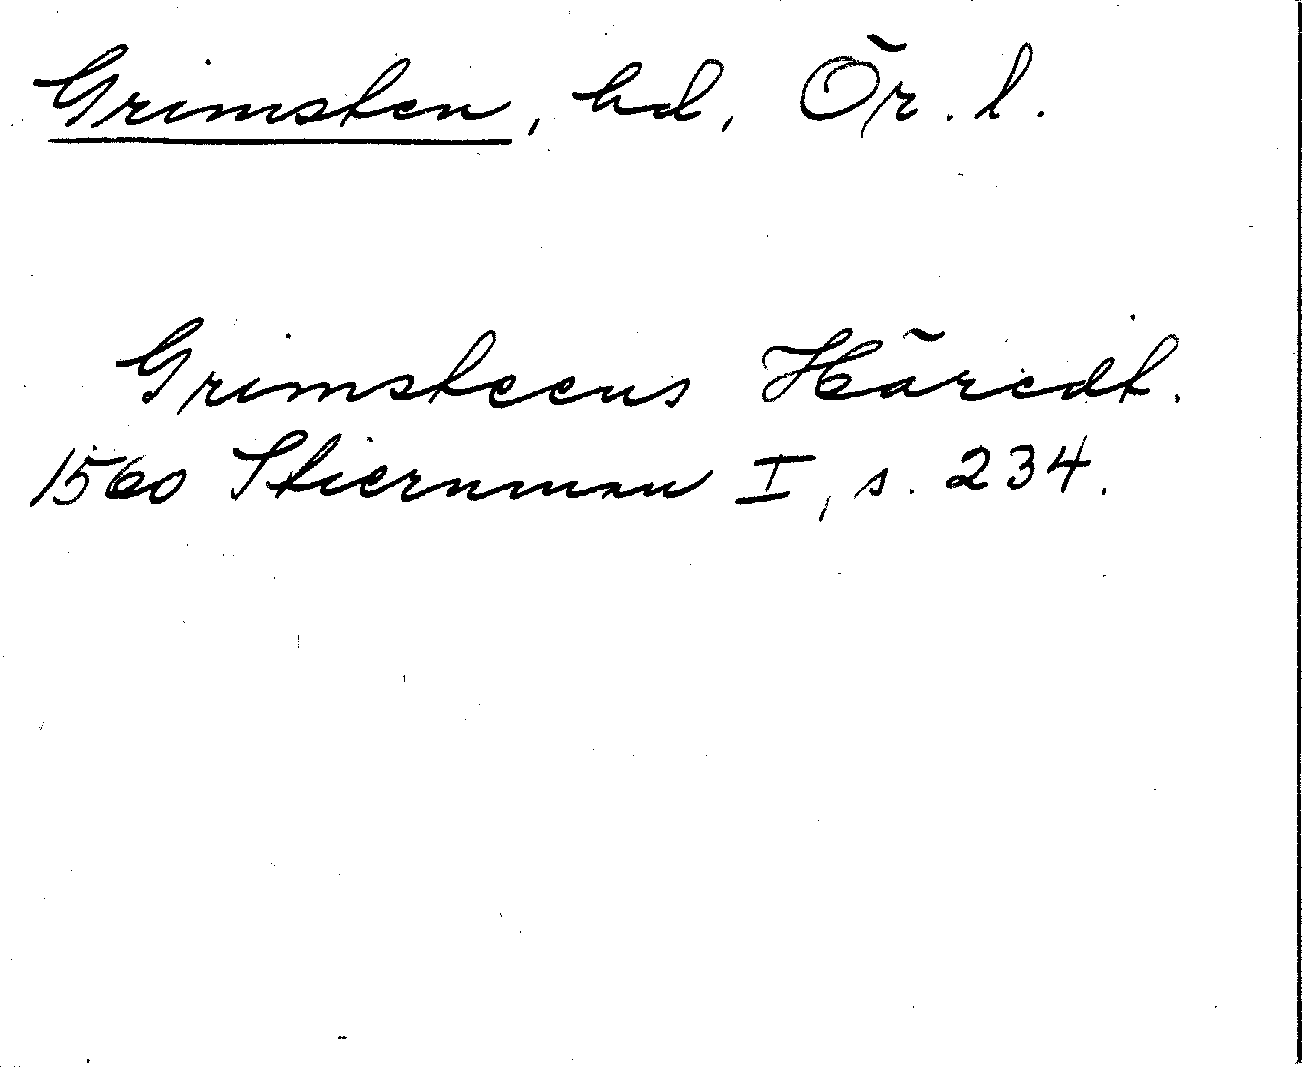 Grimsten, hd, Ör. l.
Grimsteens Häredt.
1560 Stiernman I, s. 234.